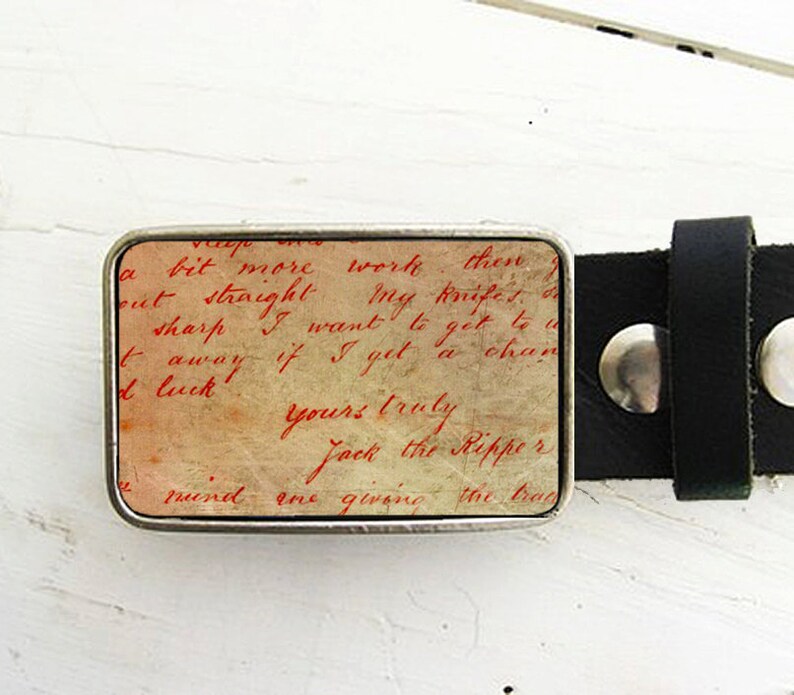 a bit more work. then g
out straight My knife's s
sharp I want to get to w
t away if I get a chan
d luck
yours truly
Jack the Ripper
mind me giving the trad